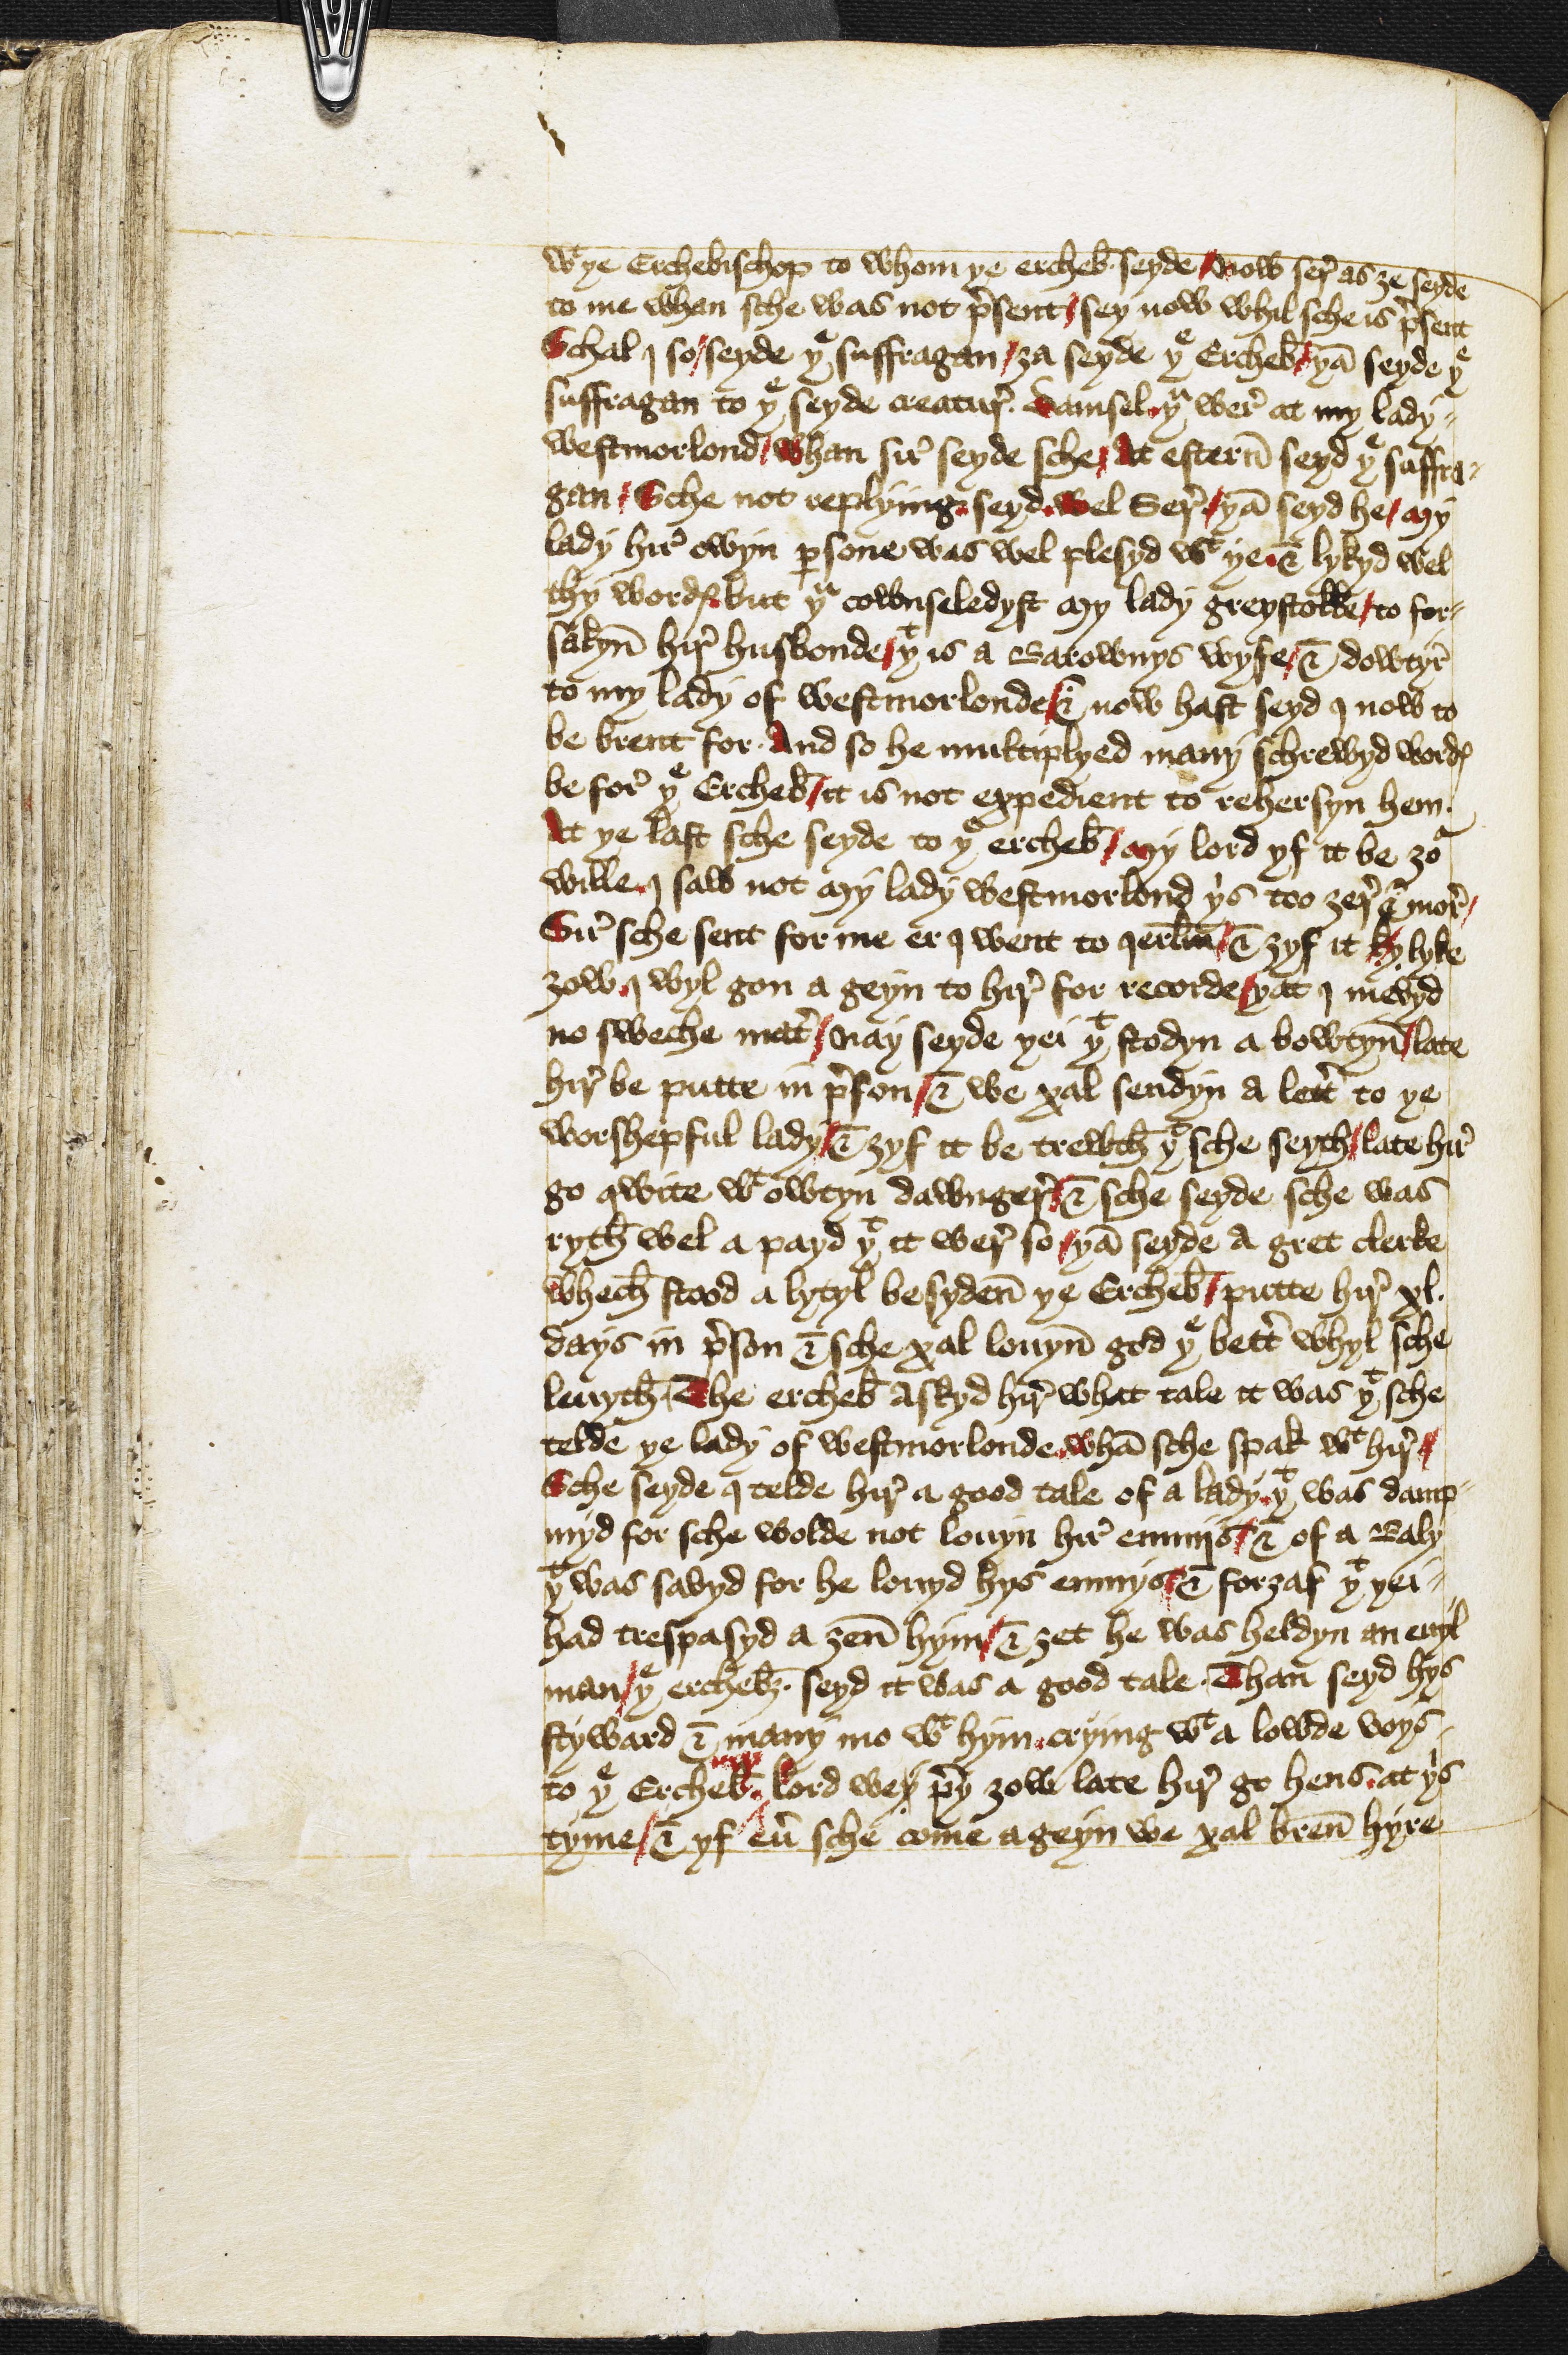 wᵗ ye Erchebischop to whom ye ercheb̄. seyde / Now ser̛ as ze seyde
to me whan sche was not p̛sent / sey now whil sche is p̛sent
Schal I so / seyde yᵉ suffragan / za seyde yᵉ Ercheb̄ / yā seyde yᵉ
suffragan to yᵉ seyde creatur̛. Damsel. yᵘ wer̛ at my lady-
westmorlond / Whan sir̛ seyde sche / At estern̄ seyd yᵉ suffra-
gan / Sche not replying. seyd. Wel Ser̛ / yā seyd he / My
lady hir̛ owyn ꝑsone was wel plesyd wᵗ ye. & lykyd wel
thy wordꝭ. but yᵘ cownseledyst My lady greystokke / to for-
sakyn̄ hir̛ husbonde / yᵗ is a Barownys wyfe / & dowtyr̛
to my lady of westmorlonde / & now hast seyd I now to
be brent for. And so he multiplyed many schrewyd wordꝭ
be for̛ yᵉ Ercheb̄ / it is not expedient to rehersyn hem.
At ye last sche seyde to yᵉ ercheb̄ / My lord yf it be zoʳ
wille. I saw not My lady westmorlond yˢ too zer̛ & mor̛ /
Sir̛ sche sent for me er I went to Ierlm̄ / & zyf it ly lyke
zow. I wyl gon a geyn to hir̛ for recorde / yat I mevyd
no sweche mat̛ / Nay seyde yei yᵗ stodyn a bowtyn̄ / late
hir̛ be putte in p̛son / & we xal sendyn a lett̛ to ye
worshepful lady / & zyf it be trewth̄ yᵗ sche seyth / late hir̛
go qwite wᵗ owtyn dawnger̛ / & sche seyde sche was
ryth̄ wel a payd yᵗ it wer̛ so / yā seyde a gret clerke
whech̄ stood a lytyl besyden̄ ye Ercheb̄ / putte hir̛ xl.
days in p̛son & sche xal louyn̄ god yᵉ bett̛ whyl sche
leuyth̄. The ercheb̄ askyd hir̛ what tale it was yᵗ sche
telde ye lady of westmorlonde. whā sche spak wᵗ hir̛ /
Sche seyde I telde hir̛ a good tale of a lady. yᵗ was damp-
nyd for sche wolde not louyn hir̛ enmijs / & of a Baly
yᵗ was savyd for he louyd hys enmys / & forzaf yᵗ yei-
had trespasyd a zen̄ hym / & zet he was heldyn an euyl
man / yᵉ ercheb̄. seyd it was a good tale. Than seyd hys
styward & many mo wᵗ hym. crying wᵗ a lowde voys-
to yᵉ Ercheb̄. lord wey p̛y zow late hir̛ go hens. at yˢ
tyme / & yf eư sche come ageyn we xal bren̄ hyre